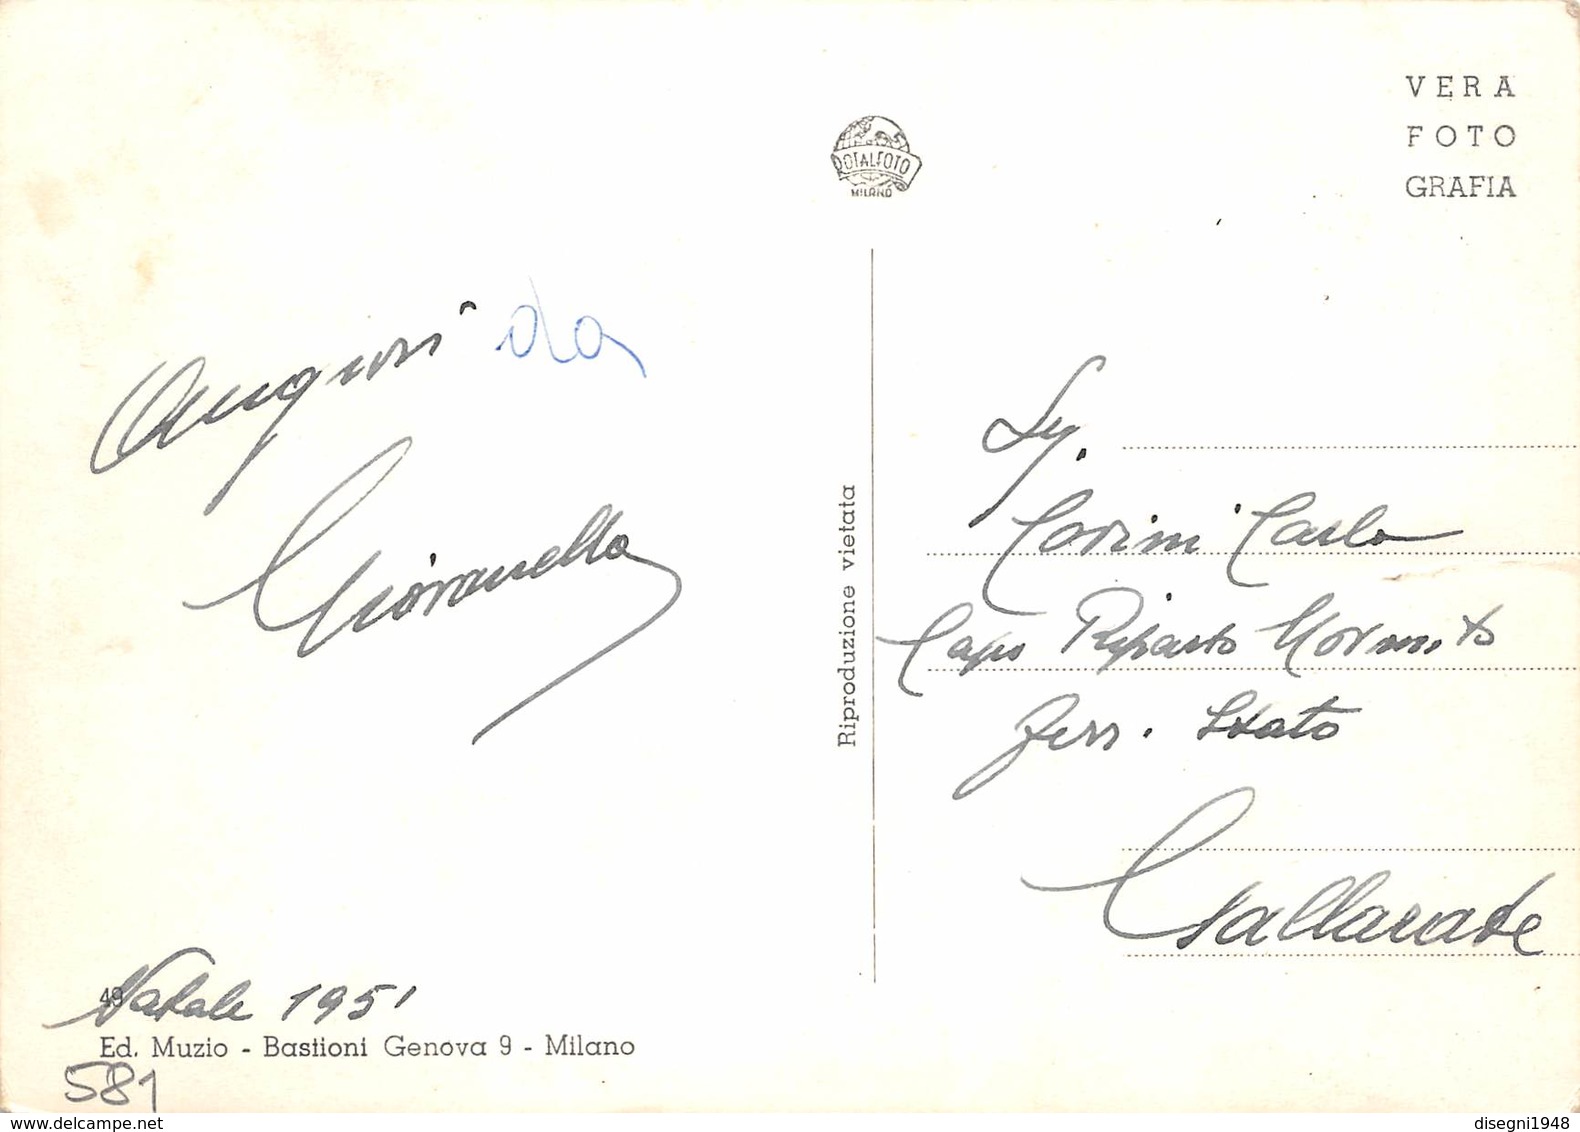 VERA
FOTO
GRAFIA
ROTALFOTO
MILANO
Auguri da
Giovanella
Natale 1951
49
Ed. Muzio - Bastioni Genova 9 - Milano
581
Riproduzione vietata
Sig.
Corini Carlo
Capo Riparto Movim.to
Ferr. Stato
Gallarate
delcampe.net
disegni1948